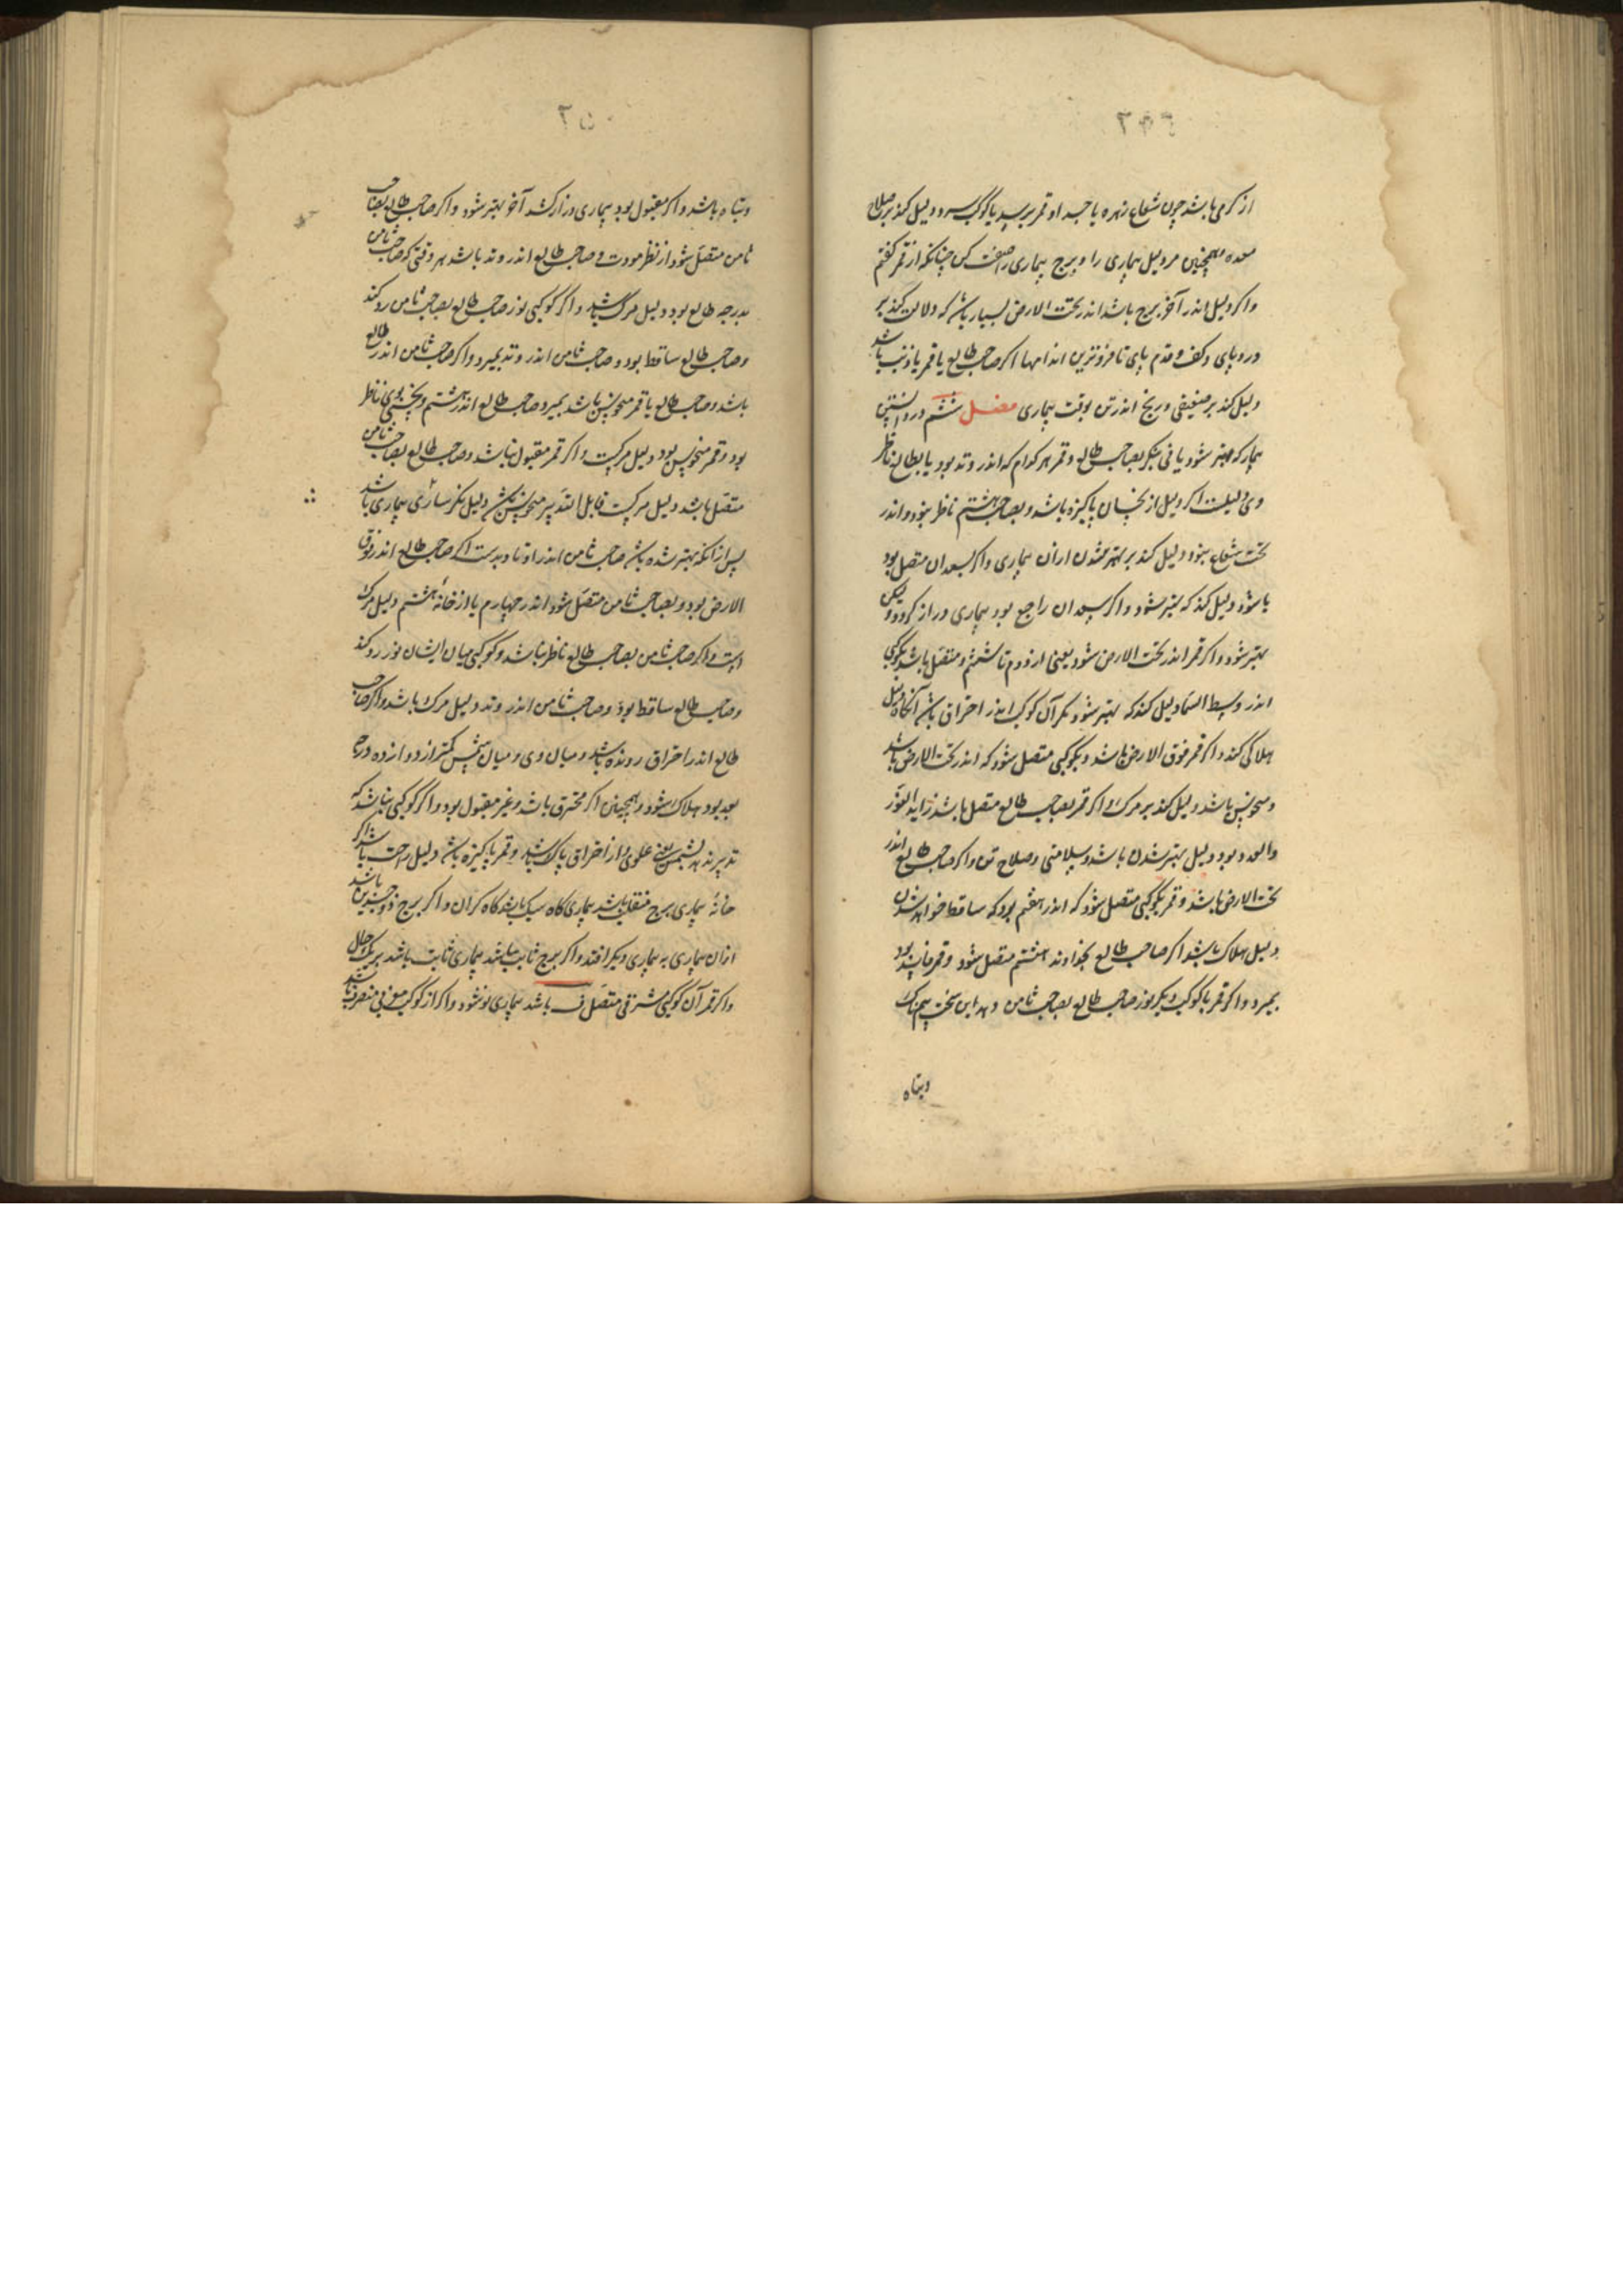 از گرمی باشد چون شعاع زهره با جسد او قمر برسد یا کوکب سرد دلیل کند بر صلاح
معده همچنین مر دلیل بیماری را و برج بیماری را صفت کن چنانکه از قمر گفتم
واکر دلیل اندر آخر برج باشد اندر تحت الارض بسیار باشد که دلالت کند بر
درد پای و کف و قدم پای تا فروترین اندامها اکر صاحب طالع یا قمر یا ذنب باشد
دلیل کند بر ضعیفی و رنج اندر تن بوقت بیماری فصل ششم در دانستن
بیمار که بهتر شود یا نی بنکر بصاحب طالع و قمر هر کدام که اندر وتد بود یا بطالع ناظر
وی دلیلست اکر دلیل از نحسان پاکیزه باشد و بصاحب هشتم ناظر نبود و اندر
تحت شعاع نبود دلیل کند بر بهتر شدن ازان بیماری واکر بسعدان متصل بود
یا شود دلیل کند که بهتر شود واکر سعدان راجع بود بیماری دراز کردد ولیکن
بهتر شود واکر قمر اندر تحت الارض شود یعنی از دوم تا ششم و متصل باشد بکوکبی
اندر وسط السما دلیل کند که بهتر شود مکر آن کوکب اندر احتراق باشد آنکاه دلیل
هلاکی کند واکر قمر فوق الارض باشد و بکوکبی متصل شود که اندر تحت الارض باشد
و منحوس باشد دلیل کند بر مرک واکر قمر بصاحب طالع متصل باشد زاید النور
والعدد بود دلیل بهتر شدن باشد و سلامتی و صلاح تن واکر صاحب طالع اندر
تحت الارض باشد و قمر بکوکبی متصل شود که اندر هفتم بود که ساقط خواهد شدن
دلیل هلاک باشد اکر صاحب طالع بخداوند هشتم متصل شود و قمر فاسد بود
بمیرد واکر قمر یا کوکب دیکر نور صاحب طالع بصاحب ثامن دهد این سخت بیمناک
وتباه
وتباه باشد واکر مقبول بود بیماری دراز کشد آخر بهتر شود واکر صاحب طالع بصاحب
ثامن متصل شود از نظر مودت و صاحب طالع اندر وتد باشد هر وقتی که صاحب ثامن
بدرجه طالع بود دلیل مرک باشد واکر کوکبی نور صاحب طالع بصاحب ثامن رد کند
وصاحب طالع ساقط بود و صاحب ثامن اندر وتد بمیرد واکر صاحب ثامن اندر طالع
باشد وصاحب طالع یا قمر منحوس باشد بمیرد وصاحب طالع اندر هشتم و نحسی بوی ناظر
بود و قمر منحوس بود دلیل مرکست واکر قمر مقبول نباشد وصاحب طالع بصاحب ثامن
متصل باشد دلیل مرکست قابل التدبیر منحوس باشد دلیل نکرساری بیماری باشد
پس از انکه بهتر شده باشد صاحب ثامن اندر اوتاد بدست اکر صاحب طالع اندر فوق
الارض بود و بصاحب ثامن متصل شود اندر چهارم یا از خانه هشتم دلیل مرک
است واکر صاحب ثامن بصاحب طالع ناظر نباشد و کوکبی میان ایشان نور رد کند
وصاحب طالع ساقط بود وصاحب ثامن اندر وتد دلیل مرک باشد واکر صاحب
طالع اندر احتراق رونده باشد و میان وی و میان شمس کمتر از دوازده درجه
بعد بود هلاک شود و همچنین اکر محترق باشد و غیر مقبول بود واکر کوکبی نباشد که
تدبیر بدهد بشمس یعنی علوی و از احتراق پاک باشد و قمر پاکیزه باشد دلیل راحت باشد اکر
خانه بیماری برج منقلب باشد بیماری کاه سبک باشد کاه کران واکر برج ذوجسدین باشد
ازان بیماری به بیماری دیکر افتد واکر برج ثابت باشد بیماری ثابت باشد بر یک حال
واکر قمر آن کوکبی مشرقی متصل باشد بیماری نو شود واکر از کوکب مغربی منصرف باشد